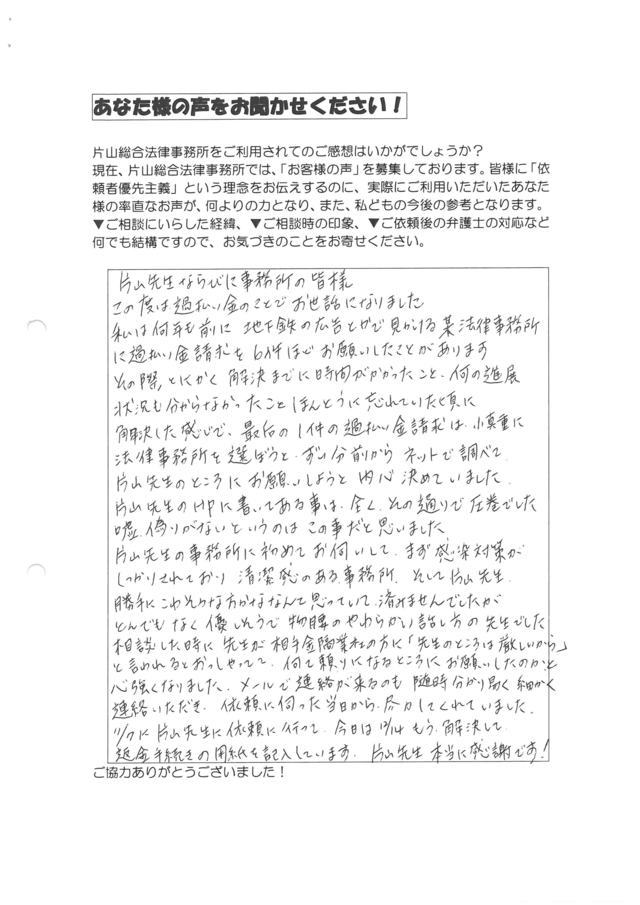 あなた様の声をお聞かせください！
片山総合法律事務所をご利用されてのご感想はいかがでしょうか？
現在、片山総合法律事務所では、「お客様の声」を募集しております。皆様に「依
頼者優先主義」という理念をお伝えするのに、実際にご利用いただいたあなた
様の率直なお声が、何よりの力となり、また、私どもの今後の参考となります。
▼ご相談にいらした経緯、▼ご相談時の印象、▼ご依頼後の弁護士の対応など
何でも結構ですので、お気づきのことをお寄せください。
片山先生ならびに事務所の皆様
この度は過払い金のことでお世話になりました
私は何年も前に 地下鉄の広告とかで見かける某法律事務所
に過払い金請求を6件ほどお願いしたことがあります
その際、とにかく解決までに時間がかかったこと、何の進展
状況も分からなかったこと ほんとうに忘れていた頃に
解決した感じで、最后の1件の過払い金請求は、慎重に
法律事務所を選ぼうと、ずい分前から ネットで調べて、
片山先生のところにお願いしようと内心決めていました。
片山先生のHPに書いてある事は、全く、その通りで圧巻でした
嘘、偽りがないというのは この事だと思いました
片山先生の事務所に初めてお伺いして、まず感染対策が
しっかりされており 清潔感のある事務所、そして片山先生、
勝手にこわそうな方かななんて思っていて、済みませんでしたが
とんでもなく優しそうで物腰のやわらかい話し方の先生でした
相談した時に先生が相手金融業社の方に「先生のところは厳しいから」
と言われるとおっしゃってて、何て頼りになるところにお願いしたのかと
心強くなりました、メールで連絡が来るのも 随時分かり易く細かく
連絡いただき、依頼に伺った当日から、尽力してくれていました。
11/7に片山先生に依頼に行って、今日は12/14 もう、解決して、
返金手続きの用紙を記入しています。片山先生 本当に感謝です！
ご協力ありがとうございました！